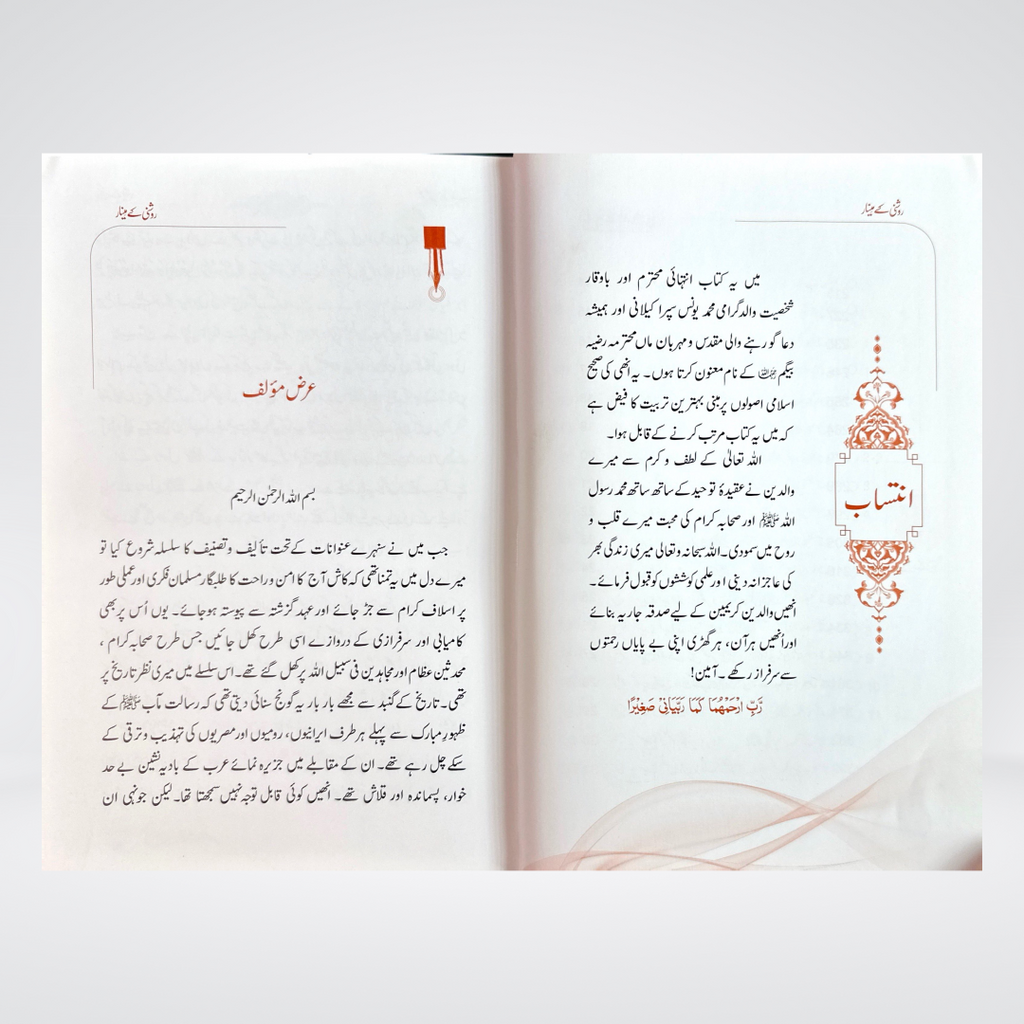 روشنی کے مینار
انتساب
میں یہ کتاب انتہائی محترم اور باوقار
شخصیت والد گرامی محمد یونس سپرا کیلانی اور ہمیشہ
دعا گو رہنے والی مقدس و مہربان ماں محترمہ رضیہ
بیگم کے نام معنون کرتا ہوں۔ یہ انھی کی صحیح
اسلامی اصولوں پر مبنی بہترین تربیت کا فیض ہے
کہ میں یہ کتاب مرتب کرنے کے قابل ہوا۔
اللہ تعالیٰ کے لطف و کرم سے میرے
والدین نے عقیدۂ توحید کے ساتھ ساتھ محمد رسول
اللہ ﷺ اور صحابہ کرام کی محبت میرے قلب و
روح میں سمودی۔ اللہ سبحانہ وتعالی میری زندگی بھر
کی عاجزانہ دینی اور علمی کوششوں کو قبول فرمائے۔
انھیں والدین کریمین کے لیے صدقہ جاریہ بنائے
اور انھیں ہر آن، ہر گھڑی اپنی بے پایاں رحمتوں
سے سرفراز رکھے۔ آمین!
رَّبِّ ارْحَمْهُمَا كَمَا رَبَّيَانِيْ صَغِيْرًا
روشنی کے مینار
عرض مؤلف
بسم اللہ الرحمٰن الرحیم
جب میں نے سنہرے عنوانات کے تحت تألیف و تصنیف کا سلسلہ شروع کیا تو
میرے دل میں یہ تمنا تھی کہ کاش آج کا امن و راحت کا طلبگار مسلمان فکری اور عملی طور
پر اسلاف کرام سے جڑ جائے اور عہد گزشتہ سے پیوستہ ہوجائے۔ یوں اُس پر بھی
کامیابی اور سرفرازی کے دروازے اسی طرح کھل جائیں جس طرح صحابہ کرام ،
محدثین عظام اور مجاہدین فی سبیل اللہ پر کھل گئے تھے۔ اس سلسلے میں میری نظر تاریخ پر
تھی۔ تاریخ کے گنبد سے مجھے بار بار یہ گونج سنائی دیتی تھی کہ رسالت مآب ﷺ کے
ظہورِ مبارک سے پہلے ہر طرف ایرانیوں، رومیوں اور مصریوں کی تہذیب و ترقی کے
سکے چل رہے تھے۔ ان کے مقابلے میں جزیرہ نمائے عرب کے بادیہ نشین بے حد
خوار، پسماندہ اور قلاش تھے۔ انھیں کوئی قابل توجہ نہیں سمجھتا تھا۔ لیکن جونہی ان